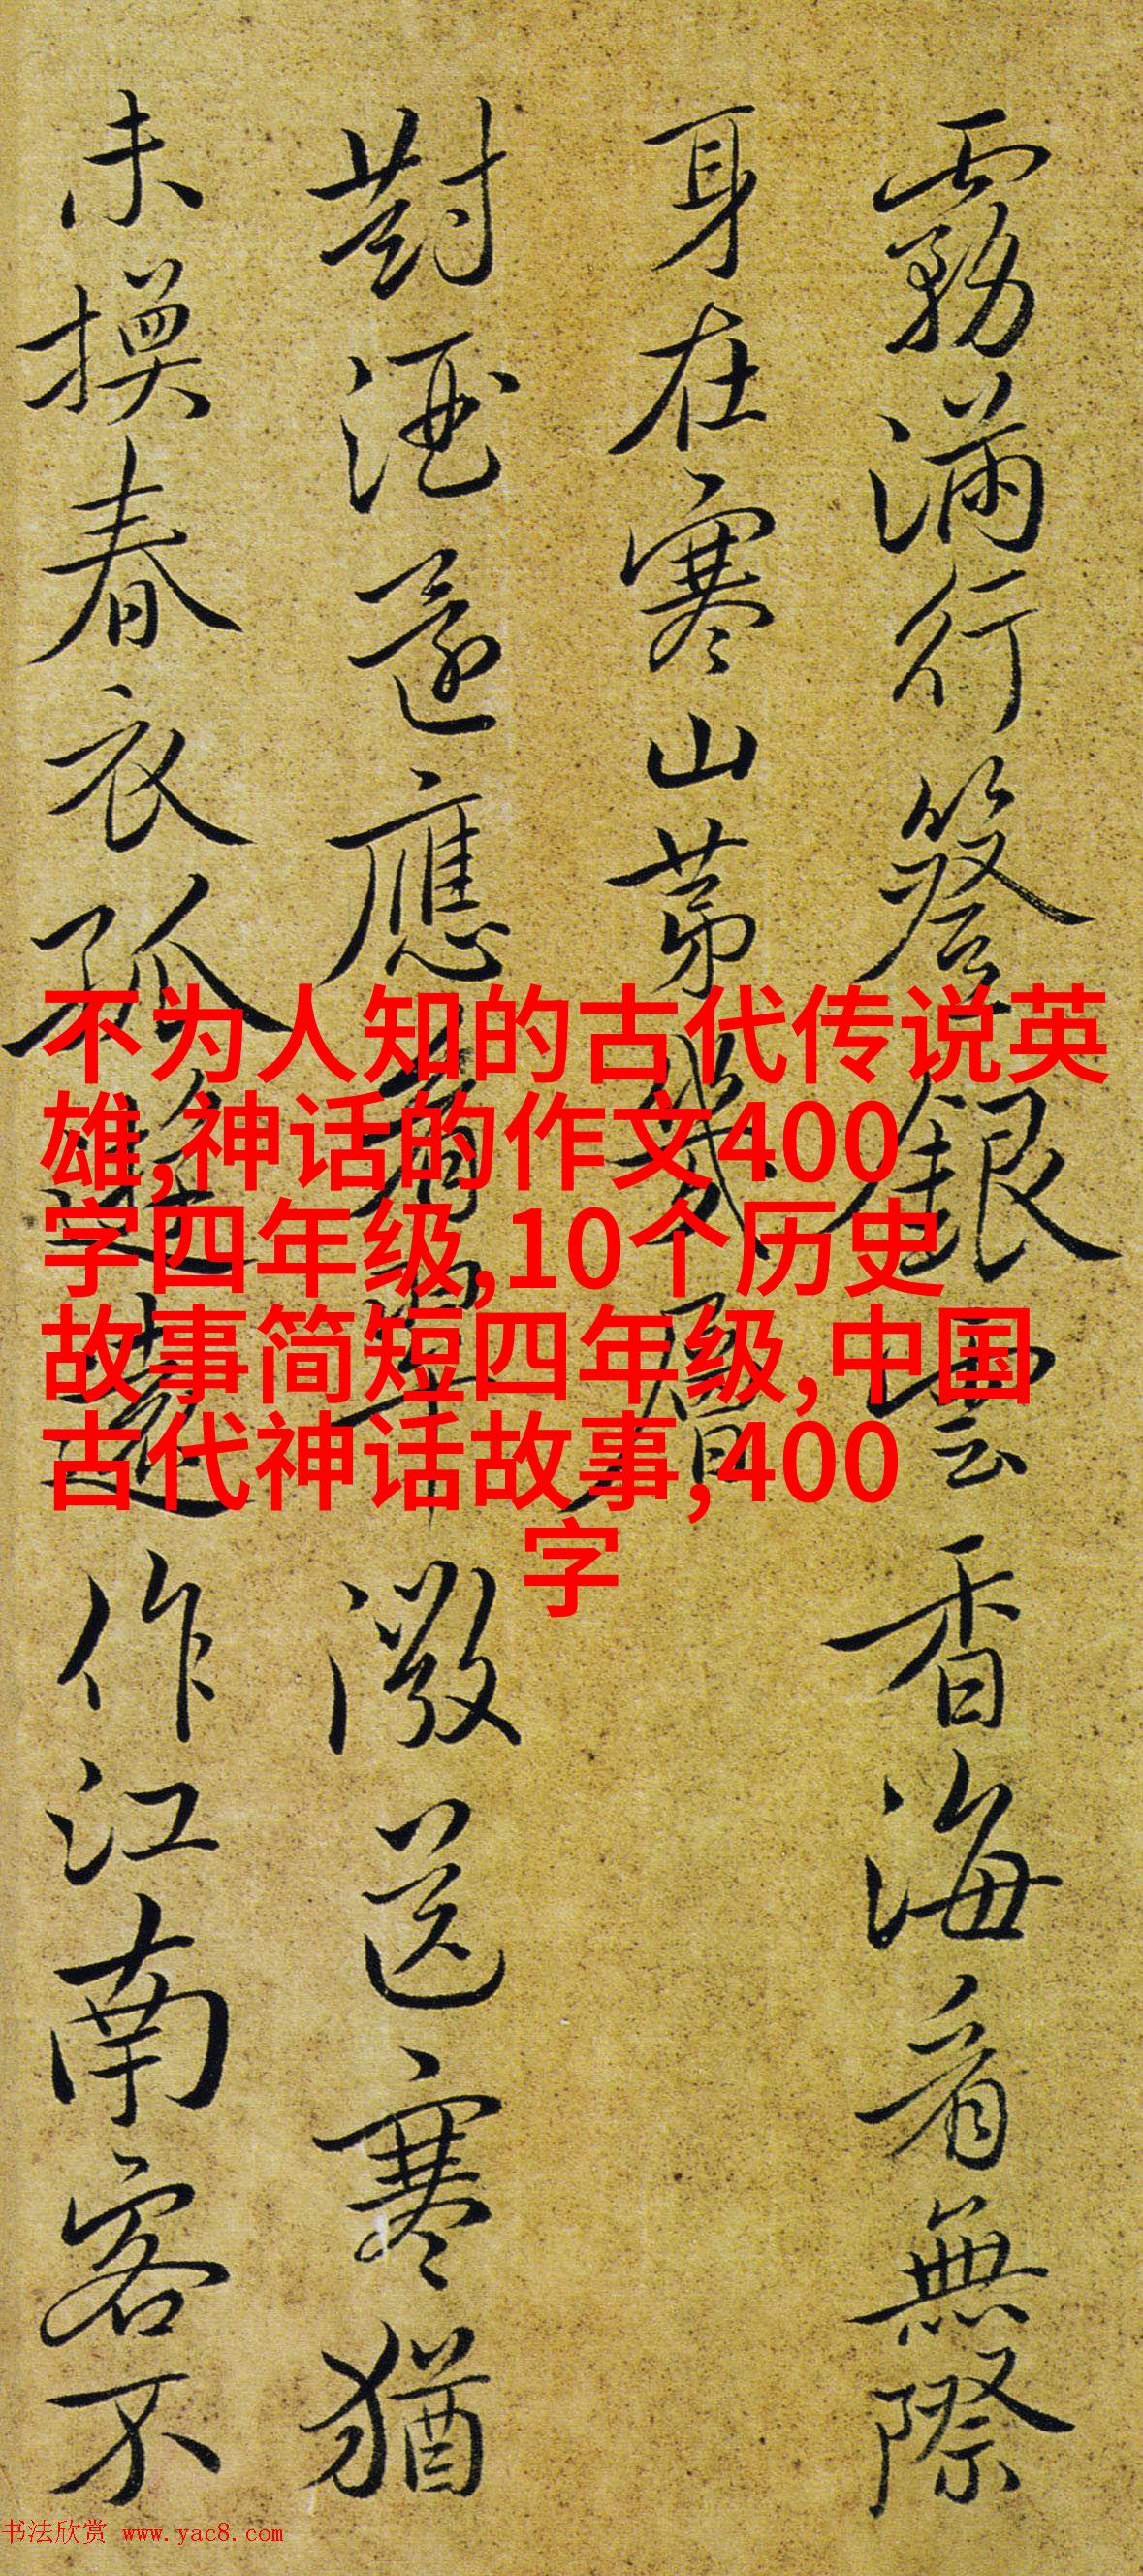 霧滿行簦銀雲香海看無際
身在寒山苐幾層
對酒還應看送寒猶
未換春衣孤作江南客不
不为人知的古代传说英
雄,神话的作文400
字四年级,10个历史
故事简短四年级,中国
古代神话故事,400
字
书法欣赏 www.yac8.com